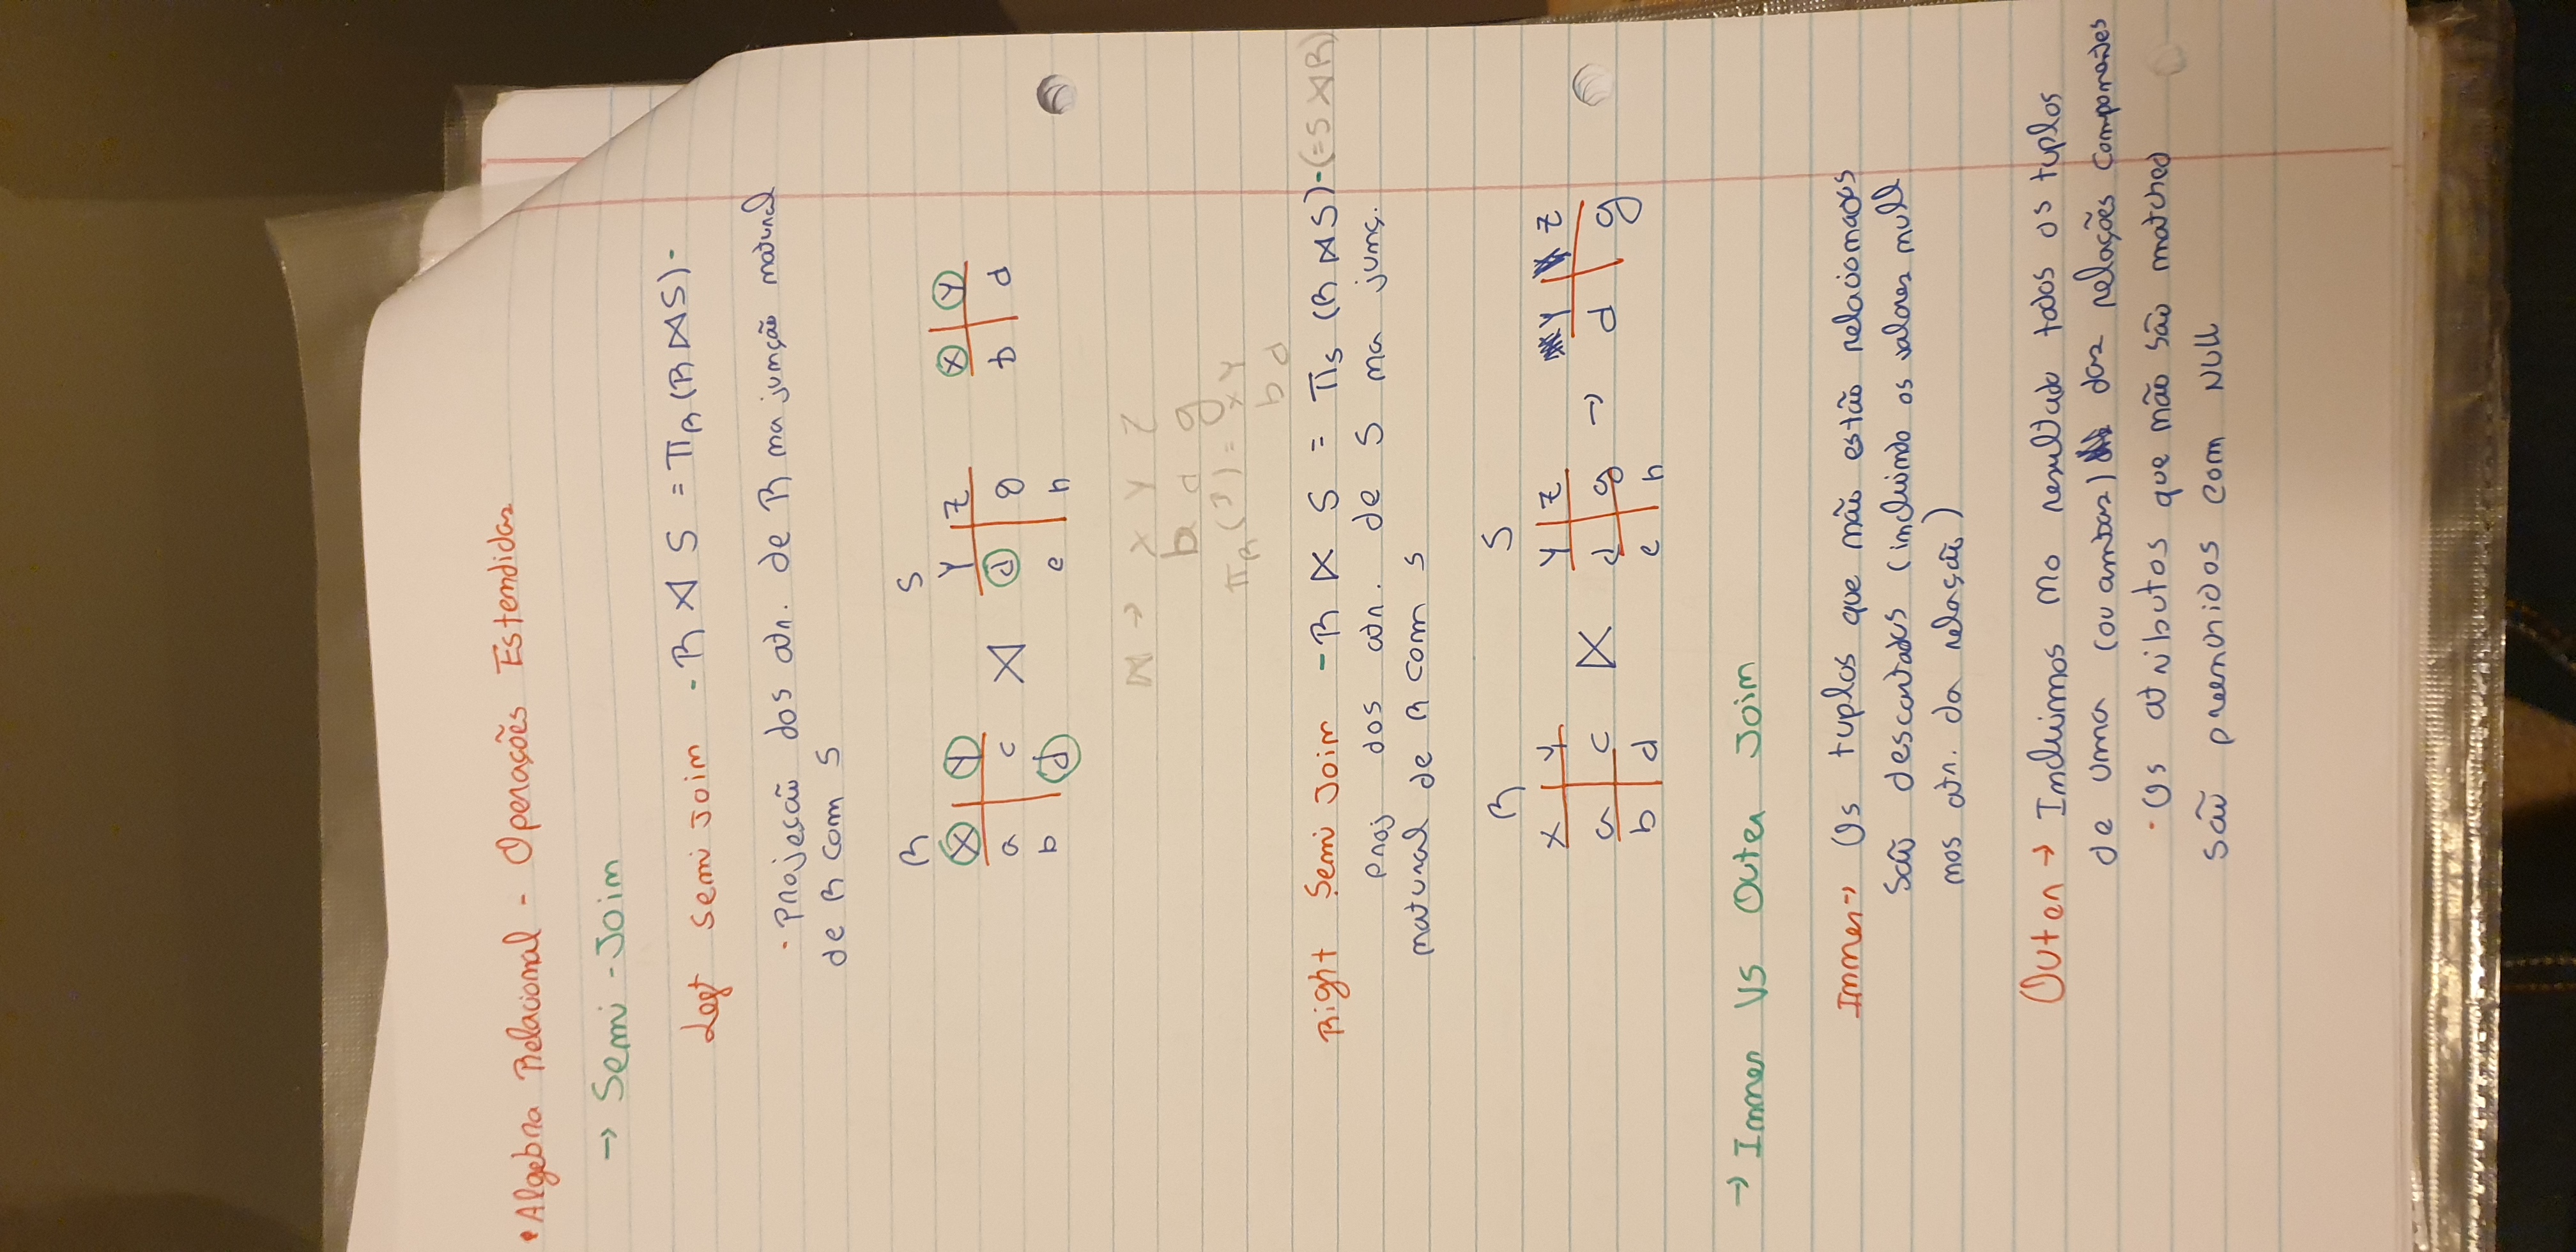 • Algebra Relacional - Operações Estendidas
→ Semi-Join
Left semi join - R ⋊ S = πR (R ⋈ S) -
· Projeção dos atr. de R na junção natural
de R com S
R S
X Y Y Z X Y
a c ⋊ d g b d
b d e h
⋈ → X Y Z
b d g
πR (J) = X Y
b d
Right Semi Join - R ⋉ S = πS (R ⋈ S) - (= S ⋊ R)
Proj dos atr. de S na junç.
natural de R com S
R S
X Y Y Z Y Z
a c ⋉ d g → d g
b d e h
→ Inner VS Outer Join
Inner → Os tuplos que não estão relacionados
são descartados (incluindo os valores null
nos atr. da relação)
Outer → Incluimos no resultado todos os tuplos
de uma (ou ambas) das relações componentes
· Os atributos que não são matched
são preenchidos com NULL